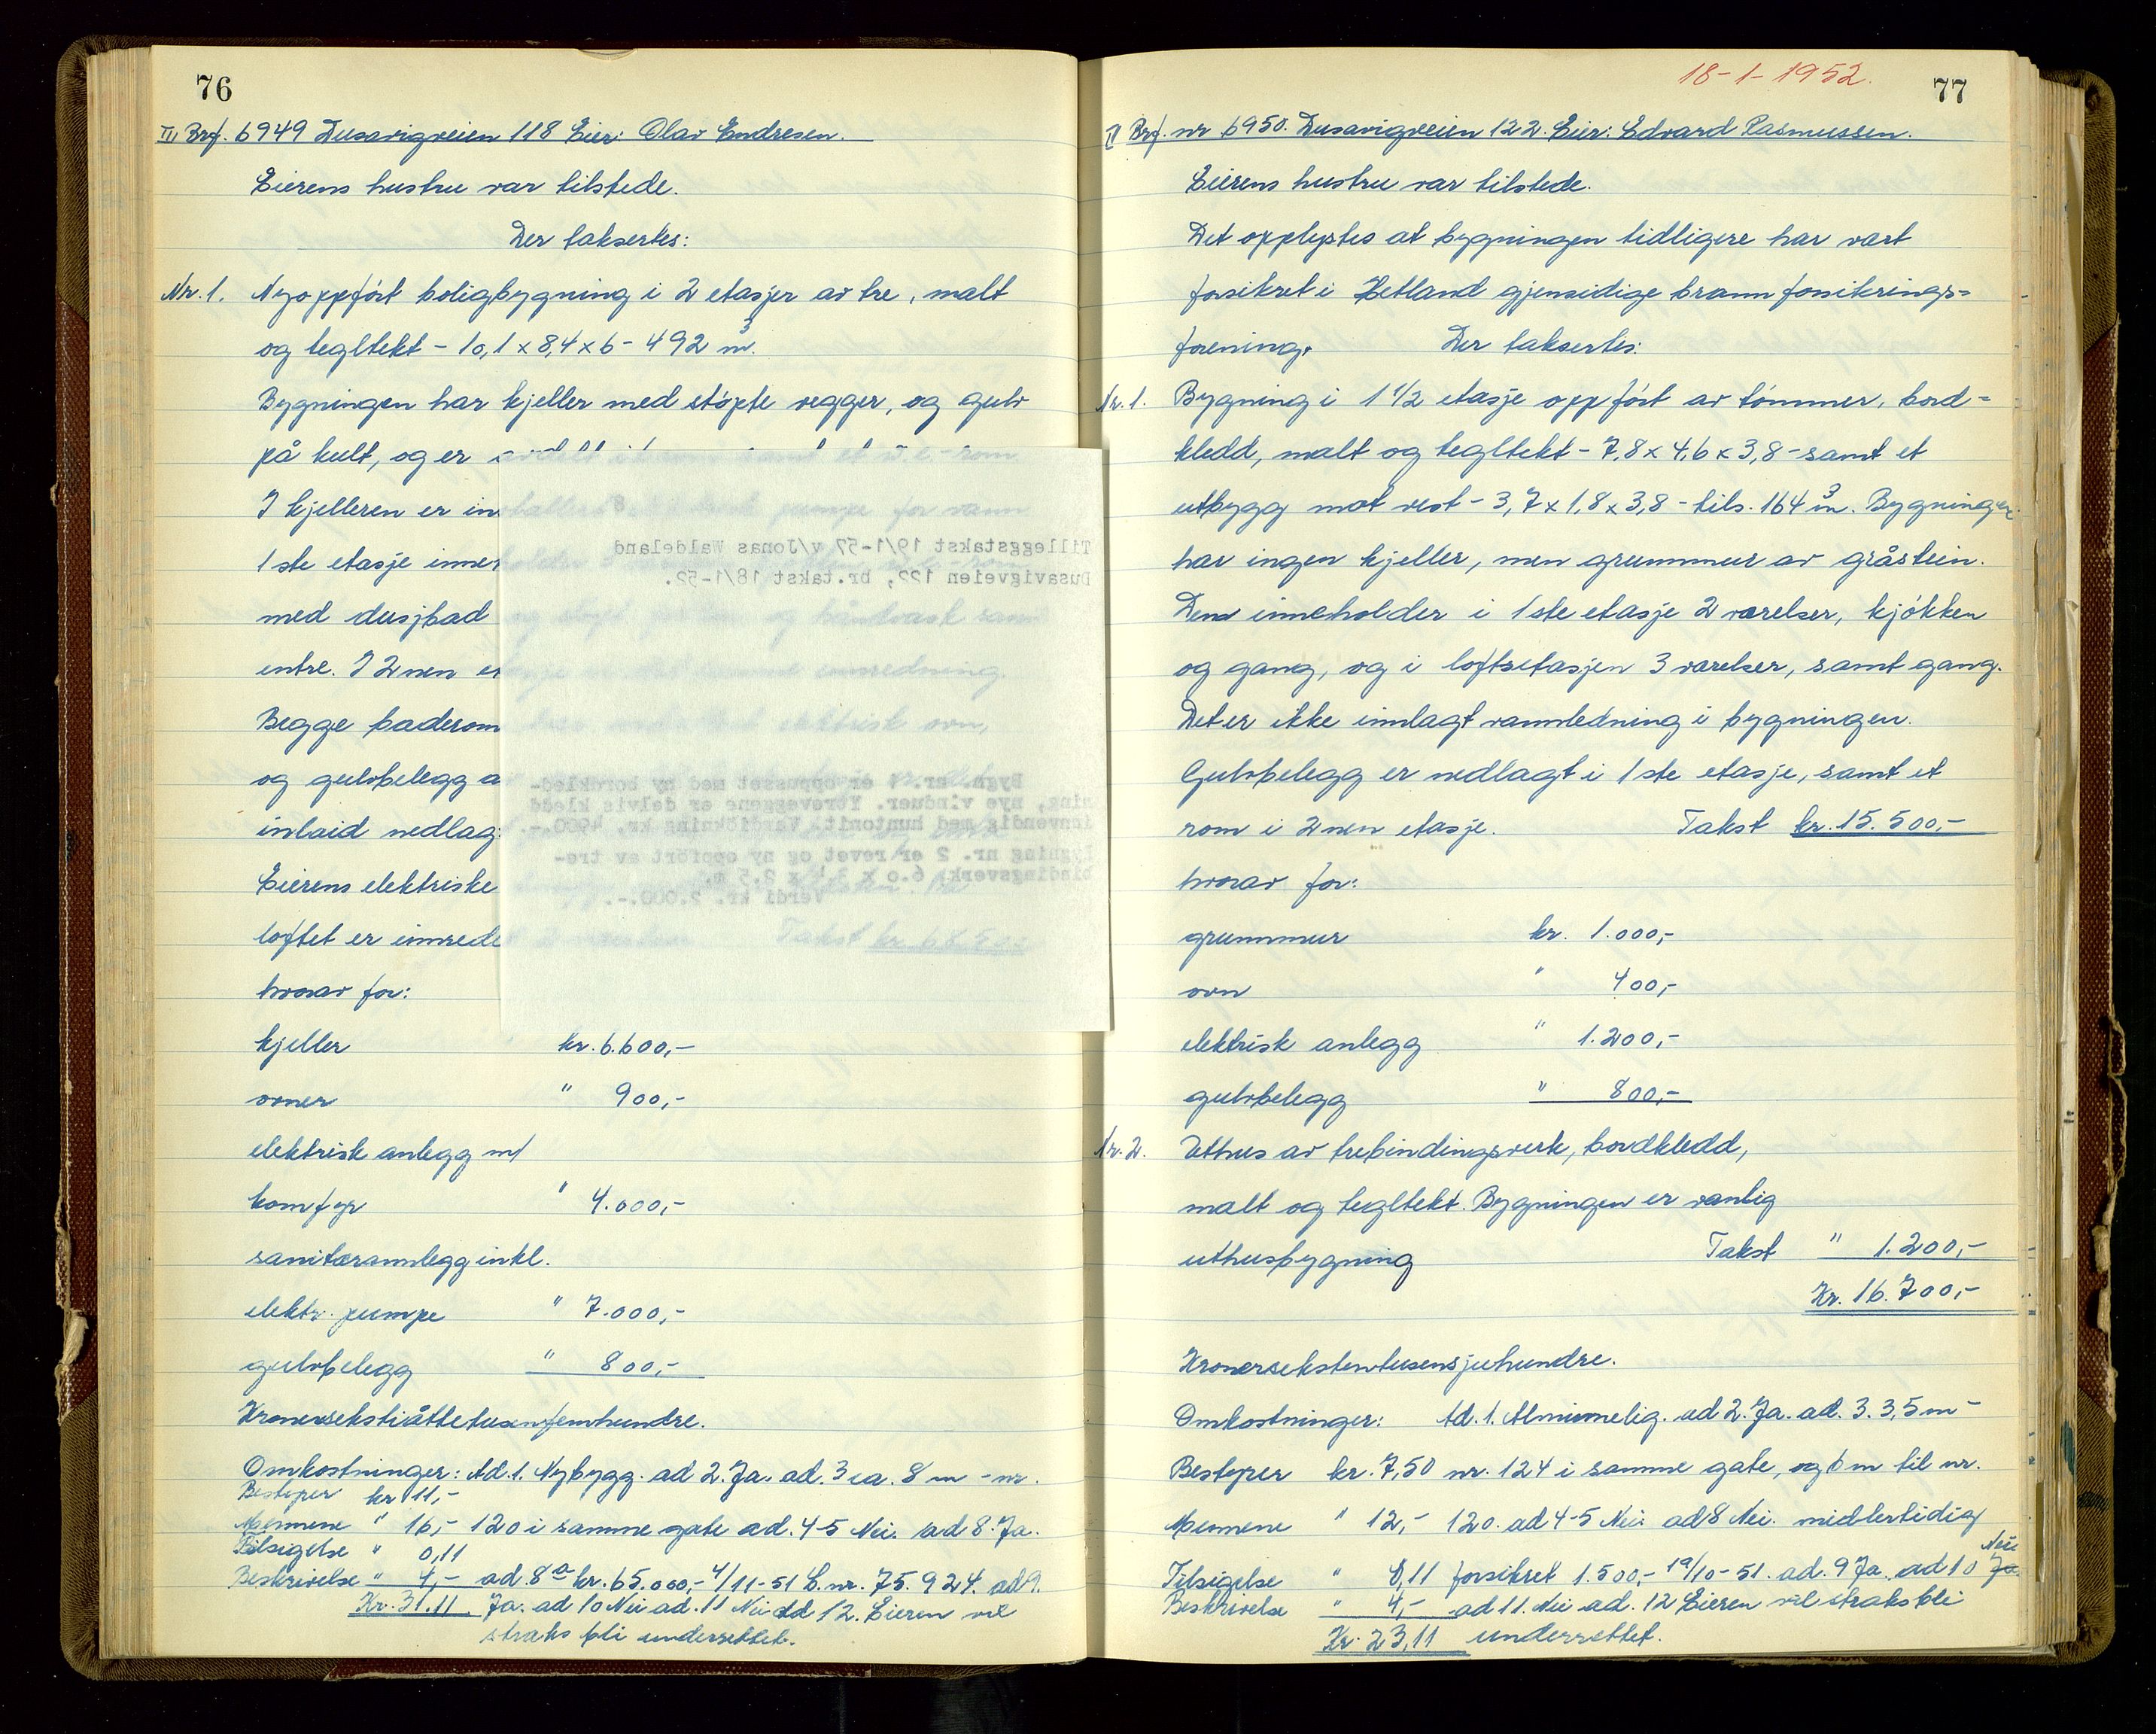 76
II Brf. 6949 Dusavigveien 118 Eier: Olav Endresen.
Eierens hustru var tilstede.
Der taksertes:
Nr. 1. Nyoppført boligbygning i 2 etasjer av tre, malt
og tegltekt - 10,1 x 8,4 x 6 - 492 m³.
Bygningen har kjeller med støpte vegger, og gulv
på kult, og er
I kjelleren er in
1ste etasje inne
med dusjbad og
entre. I 2nen e
Begge baderom
og gulvbelegg a
inlaid nedlag
Eierens elektriske
loftet er innrede
Takst kr. 68.500
hvorav for:
kjeller kr. 6.600,-
ovner " 900,-
elektrisk anlegg m/
komfyr " 4.000,-
sanitæranlegg inkl.
elektr. pumpe " 7.000,-
gulvbelegg " 800,-
Kronersekstiåttetusenfemhundre.
Omkostninger: Ad. 1. Nybygg. ad 2. Ja. ad. 3 ca. 8 m - nr.
Bestyrer kr 11,-
Mennene " 16,- 120 i samme gate ad. 4-5 Nei. ad 8. Ja.
Tilsigelse " 0,11
Beskrivelse " 4,- ad. 8a kr. 65.000,- 4/11-51 L.nr. 75.924. ad 9.
Kr. 31.11 Ja. ad 10 Nei ad. 11 Nei ad 12. Eieren vil
straks bli underrettet.
Tilleggstakst 19/1-57 v/Jonas Waldeland
Dusavigveien 122, br.takst 18/1-52.
Bygn. nr. 1 er oppusset med ny bordkled-
ning, nye vinduer. Ytreveggene er delvis kledd
innvendig med huntonit. Verdiøkning kr. 4900.-.
Bygning nr. 2 er revet og ny oppført av tre-
bindingsverk 6.0 x 3. x 2.5 m.
Verdi kr. 2.000.-.
18-1-1952.
77
II Brf. nr 6950. Dusavigveien 122. Eier: Edvard Rasmussen.
Eierens hustru var tilstede.
Det opplystes at bygningen tidligere har vært
forsikret i Hetland gjensidige brannforsikrings=
forening. Der taksertes:
Nr. 1. Bygning i 1 1/2 etasje oppført av tømmer, bord=
kledd, malt og tegltekt - 7,8 x 4,6 x 3,8 - samt et
utbygg mot vest - 3,7 x 1,8 x 3,8 - tils. 164 m³. Bygningen
har ingen kjeller, men grunnmur av gråstein.
Den inneholder i 1ste etasje 2 værelser, kjøkken
og gang, og i loftsetasjen 3 værelser, samt gang.
Det er ikke innlagt vannledning i bygningen.
Gulvbelegg er nedlagt i 1ste etasje, samt et
rom i 2nen etasje. Takst kr. 15.500,-
hvorav for:
grunnmur kr. 1.000,-
ovn " 400,-
elektrisk anlegg " 1.200,-
gulvbelegg " 800,-
Nr. 2. Uthus av trebindingsverk, bordkledd,
malt og tegltekt. Bygningen er vanlig
uthusbygning Takst " 1.200,-
Kr. 16.700,-
Kronersekstentusensjuhundre.
Omkostninger: Ad. 1. Alminnelig. ad 2. Ja. ad. 3. 3,5 m -
Bestyrer kr. 7,50 nr. 124 i samme gate, og 6 m til nr.
Mennene " 12,- 120. ad 4-5 Nei. ad 8 Nei. midlertidig
Tilsigelse " 0,11 forsikret 1.500,- 19/10-51. ad. 9 Ja. ad 10 Ja. Nei
Beskrivelse " 4,- ad 11. Nei ad. 12 Eieren vil straks bli
Kr. 23,11 underrettet.